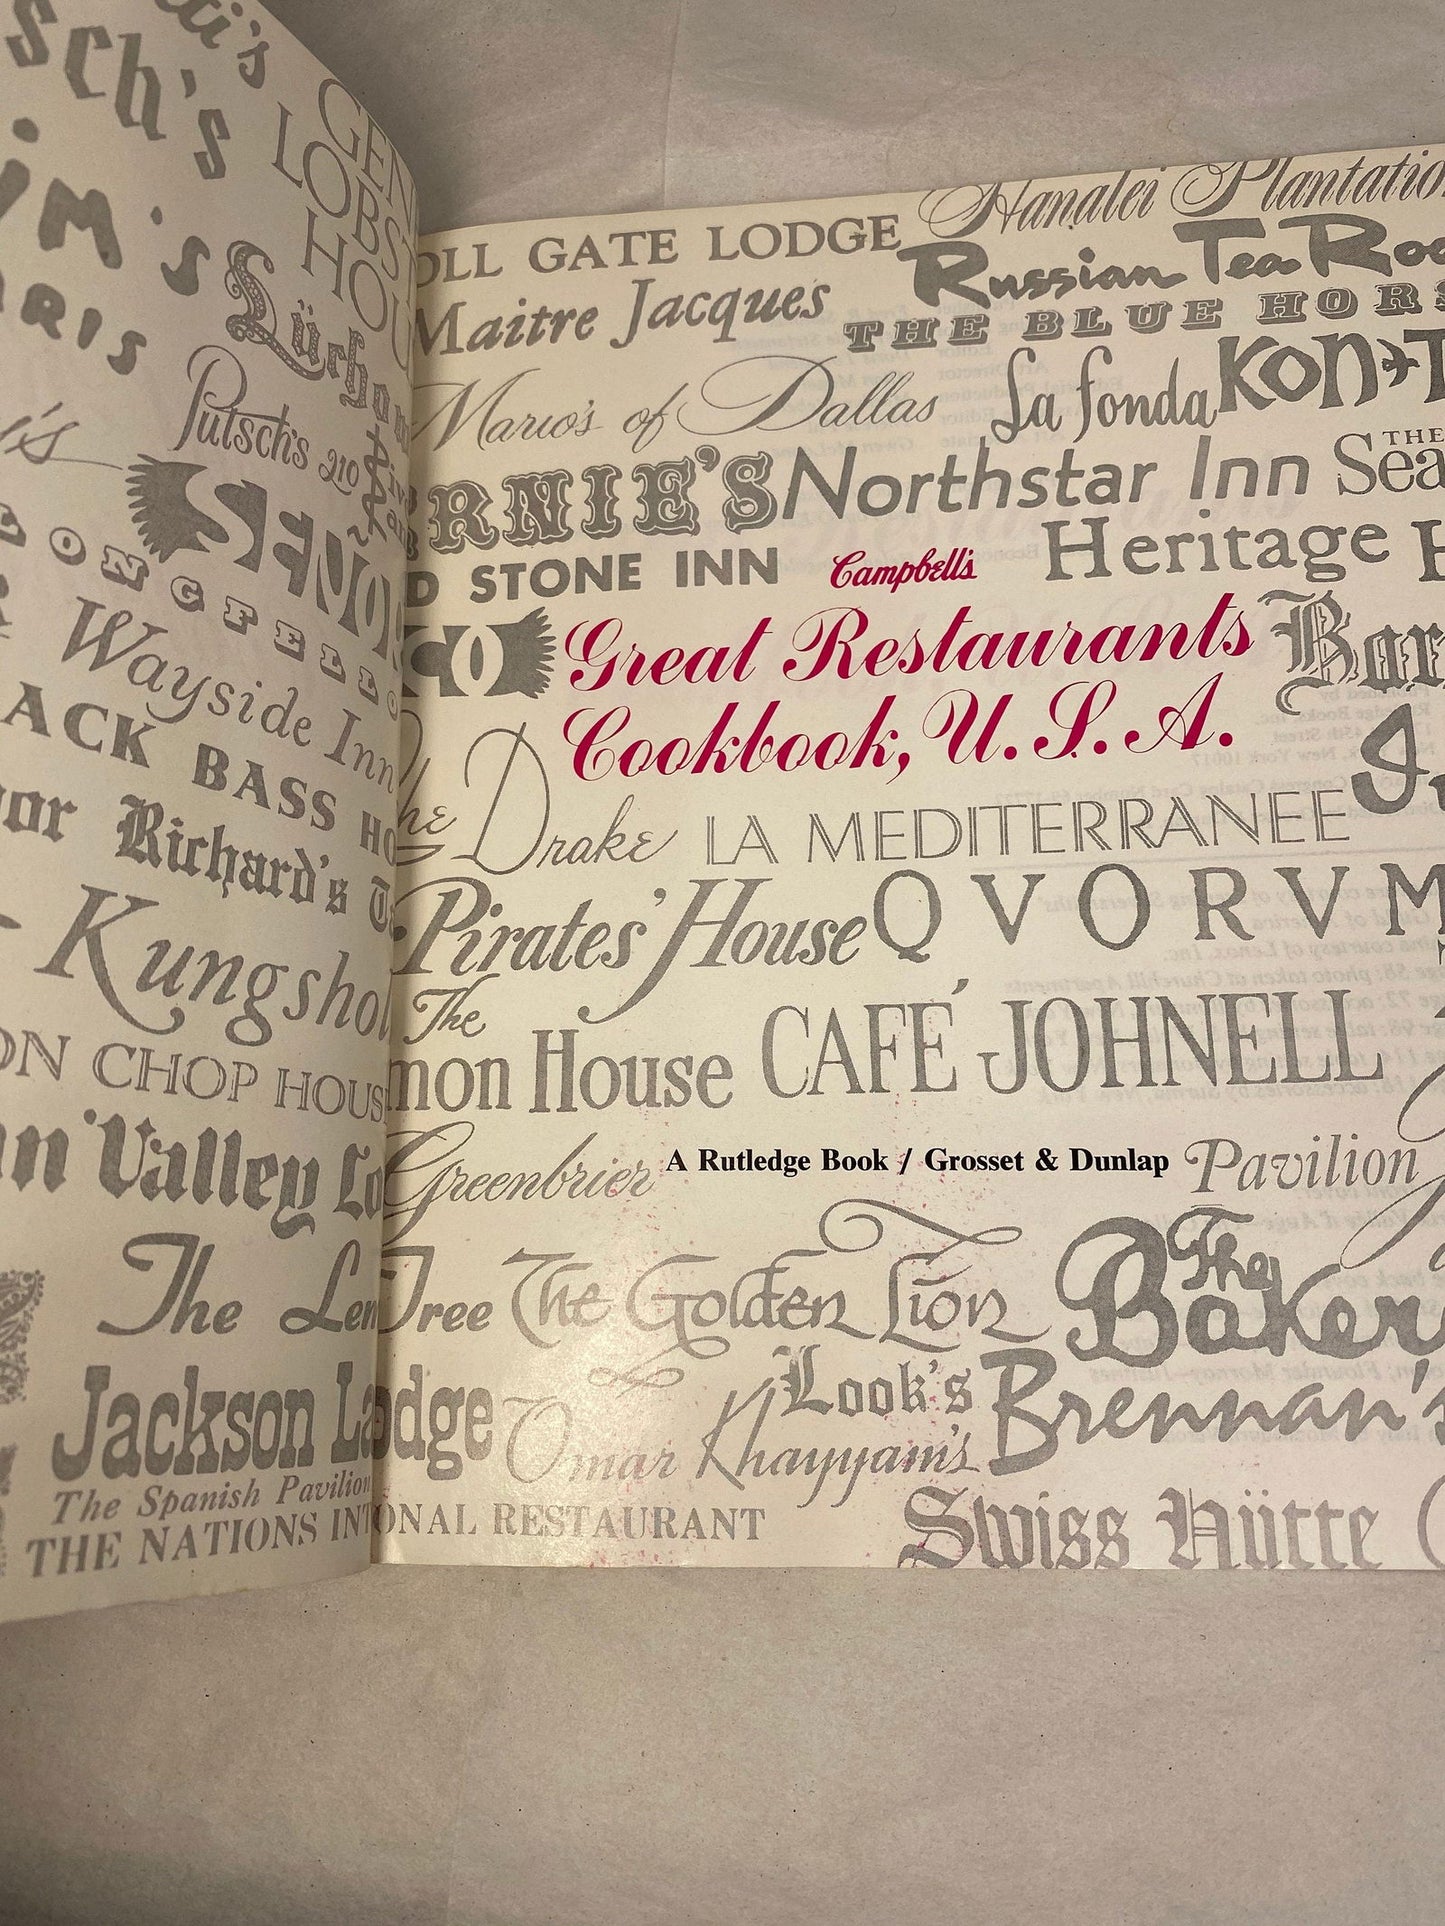 GEN
LOBS
HOU
Lüchow
Putsch's 210
SEÑOR
LONGFELLO
Wayside Inn
ACK BASS HO
Richard's
Kungshol
ON CHOP HOUS
Valley Lo
The Lem
Jackson La
The Spanish Pavilion
THE NATIONS INT
OLL GATE LODGE
Hanalei Plantation
Maitre Jacques
Russian Tea Roo
THE BLUE HORS
Mario's of Dallas
La Fonda
KON-T
ERNIE'S
Northstar Inn
THE
Sea
D STONE INN
Campbell's
Heritage H
ICO
Great Restaurants
Cookbook, U.S.A.
Bar
The Drake
LA MEDITERRANEE
In
Pirates' House
QVORVM
The
mon House
CAFÉ JOHNELL
Greenbrier
A Rutledge Book / Grosset & Dunlap
Pavilion
Tree
The Golden Lion
The
Baker
dge
Omar Khayyam's
Look's
Brennan's
ONAL RESTAURANT
Swiss Hütte